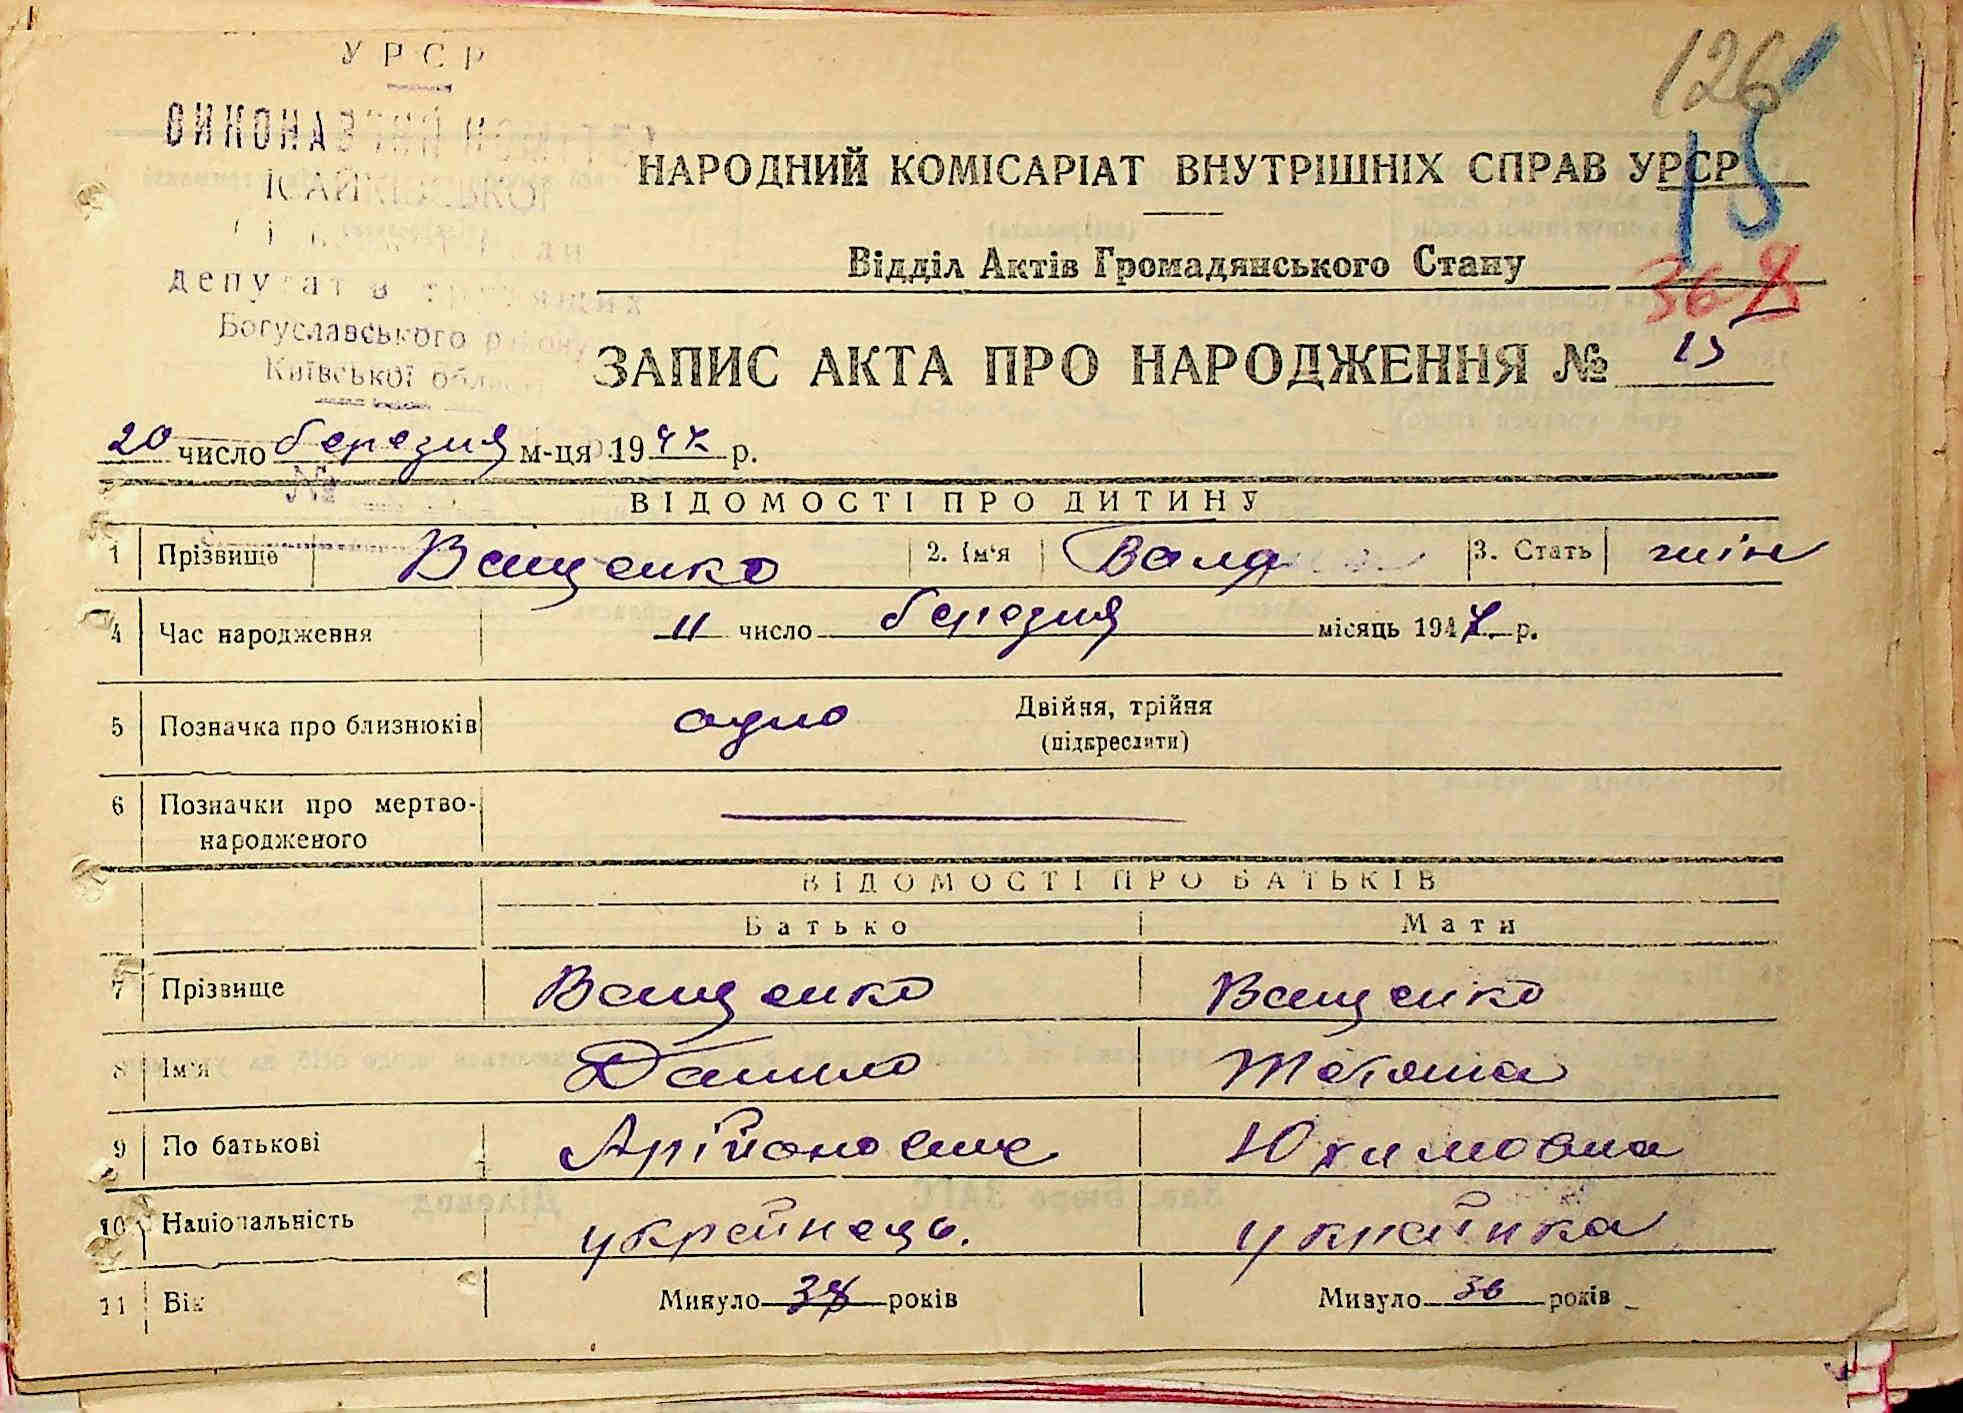 УРСР
126
15
НАРОДНИЙ КОМІСАРІАТ ВНУТРІШНІХ СПРАВ УРСР
Відділ Актів Громадянського Стану
депутатів трудящих
36 8
Богуславського району
Київської області
ЗАПИС АКТА ПРО НАРОДЖЕННЯ № 15
20 число березня м-ця 1947 р.
№
ВІДОМОСТІ ПРО ДИТИНУ
1 Прізвище Ващенко 2. Ім'я Валя 3. Стать жін
4 Час народження 11 число березня місяць 1947 р.
5 Позначка про близнюків одно Двійня, трійня
(підкреслити)
6 Позначки про мертво-
народженого
ВІДОМОСТІ ПРО БАТЬКІВ
Батько Мати
7 Прізвище Ващенко Ващенко
8 Ім'я Данило Тетяна
9 По батькові Арійонович Юхимовна
10 Національність українець. українка
11 Вік Минуло 38 років Минуло 36 років